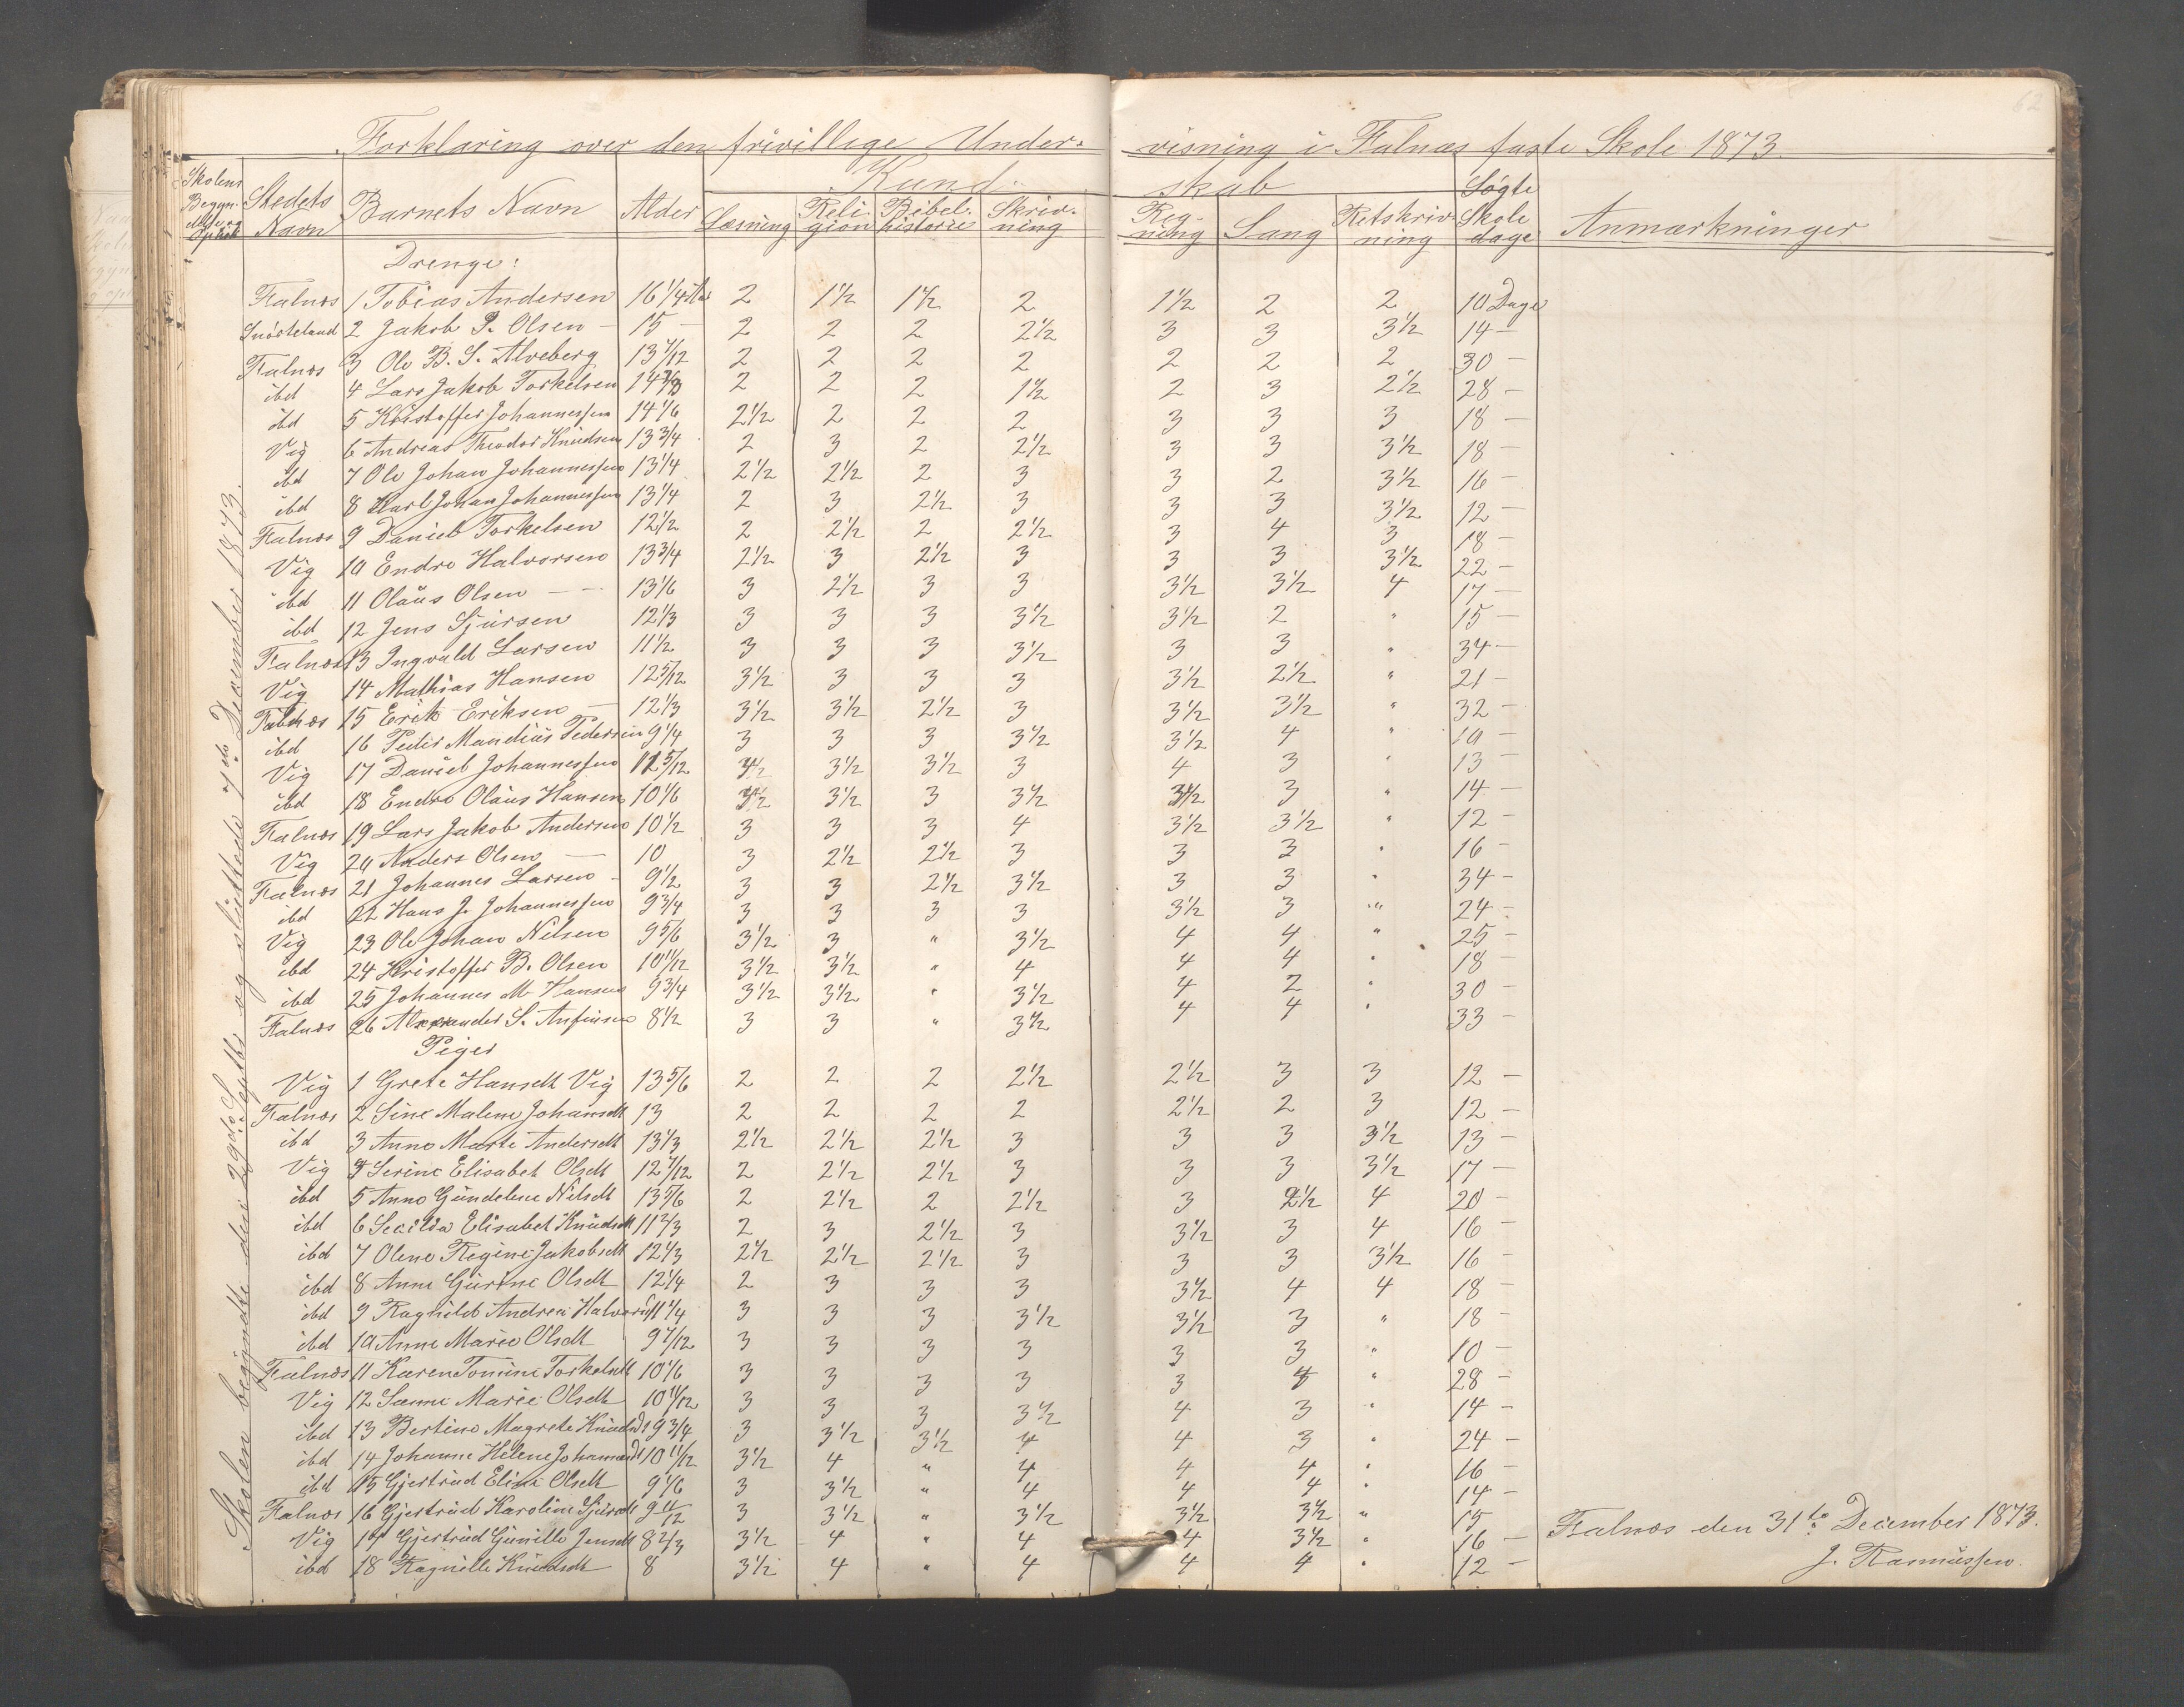 62
Forklaring over den frivillige Undervisning i Falnæs faste Skole 1873.
Skolens Begyndelse og Ophør | Stedets Navn | Barnets Navn | Alder | Kundskab | Søgte Skoledage | Anmærkninger
Læsning | Religion | Bibelhistorie | Skrivning | Regning | Sang | Retskrivning
Skolen begyndte den 29de Septbr og sluttede 7de December 1873.
Drenge:
Falnæs 1 Tobias Andersen 16 1/4 2 1 1/2 1 1/2 2 1 1/2 2 2 10 Dage
2 Jakob P. Olsen – 15 – 2 2 2 2 1/2 3 3 3 1/2 14 –
Falnæs 3 Ole B. S. Alveberg 13 7/12 2 2 2 2 2 2 2 30 –
ibd 4 Lars Jakob Torkelsen 2 2 2 1 1/2 2 3 2 1/2 28 –
ibd 5 Kristoffer Johannessen 14 1/6 2 1/2 2 2 2 3 3 3 18 –
Vig 6 Andreas Theodor Knudsen 13 3/4 2 3 2 2 1/2 3 3 3 1/2 18 –
ibd 7 Ole Johan Johannessen 13 1/4 2 1/2 2 1/2 2 3 3 2 3 1/2 16 –
ibd 8 Karl Johan Johannessen 13 1/4 2 3 2 1/2 3 3 3 3 1/2 12 –
Falnæs 9 Daniel Torkelsen 12 1/2 2 2 1/2 2 2 1/2 3 4 3 18 –
Vig 10 Endre Halvorsen 13 3/4 2 1/2 3 2 1/2 3 3 3 3 1/2 22 –
ibd 11 Olaus Olsen – – 13 1/6 3 2 1/2 3 3 3 1/2 3 1/2 4 17 –
ibd 12 Jens Sjursen 12 1/3 3 3 3 3 1/2 3 1/2 2 " 15 –
Falnæs 13 Ingvald Larsen 11 1/2 3 3 3 3 1/2 3 3 " 34 –
Vig 14 Mathias Hansen 12 5/12 3 1/2 3 3 3 3 1/2 2 1/2 " 21 –
Falnæs 15 Erik Eriksen – 12 1/3 3 1/2 3 1/2 2 1/2 3 3 1/2 3 1/2 " 32 –
ibd 16 Peder Mandius Pedersen 9 1/4 3 3 3 3 1/2 3 1/2 4 " 10 –
Vig 17 Daniel Johannessen 3 1/2 3 1/2 3 4 3 " 13 –
ibd 18 Endre Olaus Hansen 10 1/6 3 1/2 3 1/2 3 3 1/2 3 1/2 3 " 14 –
Falnæs 19 Lars Jakob Andersen 10 1/2 3 3 3 4 3 1/2 3 1/2 " 12 –
Vig 20 Anders Olsen – 10 3 2 1/2 2 1/2 3 3 3 " 16 –
Falnæs 21 Johannes Larsen – 9 1/2 3 3 2 1/2 3 1/2 3 3 " 34 –
ibd 22 Hans J. Johannessen 9 3/4 3 3 3 3 3 1/2 3 " 24 –
Vig 23 Ole Johan Nilsen 9 5/6 3 1/2 3 " 3 1/2 4 4 " 25 –
ibd 24 Kristoffer B. Olsen 10 11/12 3 1/2 3 1/2 " 4 4 4 " 18 –
ibd 25 Johannes M. Hansen 9 3/4 3 1/2 3 1/2 " 3 1/2 4 2 " 30 –
Falnæs 26 Alexander S. Anfinsen 8 1/2 3 3 " 3 1/2 4 4 " 33 –
Piger
Vig 1 Grete Hansdt Vig 13 5/6 2 2 2 2 1/2 2 1/2 3 3 12 –
Falnæs 2 Sine Malene Johansdt 13 2 2 2 2 2 1/2 2 3 12 –
ibd 3 Anne Marte Andersdt 13 1/3 2 1/2 2 1/2 2 1/2 3 3 3 3 1/2 13 –
Vig 4 Serine Elisabet Olsdt 12 7/12 2 2 1/2 2 1/2 3 3 3 3 1/2 17 –
ibd 5 Anne Gundeline Nilsdt 13 5/6 2 2 1/2 2 2 1/2 3 2 1/2 4 20 –
ibd 6 Elisabet Knudsdt 11 2/3 2 3 2 1/2 3 3 1/2 3 4 16 –
ibd 7 Olene Regine Jakobsdt 12 1/3 2 1/2 2 1/2 2 1/2 3 3 3 3 1/2 16 –
ibd 8 Anne Gurine Olsdt 12 1/4 2 3 3 3 3 1/2 4 4 18 –
ibd 9 Ragnild Andrea Halvorsd 11 1/4 3 3 3 3 1/2 3 1/2 3 " 18 –
ibd 10 Anne Marie Olsdt 9 7/12 3 3 3 3 3 3 " 10 –
Falnæs 11 Karen Tomine Torkelsdt 10 1/6 3 3 3 3 3 4 " 28 –
Vig 12 Marie Olsdt 10 11/12 3 3 3 3 1/2 4 3 " 14 –
ibd 13 Bertine Magrete Knudsd 9 3/4 3 3 1/2 3 1/2 4 4 3 " 24 –
ibd 14 Johanne Helene Johannesd 10 11/12 3 1/2 4 " 4 4 4 " 16 –
ibd 15 Gjertrud Elisa Olsdt 9 1/6 3 3 1/2 " 4 4 4 " 14 –
Falnæs 16 Gjertrud Karoline Sjursdt 3 3 1/2 " 3 1/2 3 1/2 3 1/2 " 15 –
Vig 17 Gjertrud Gunille Jensdt 8 2/3 3 1/2 4 " 4 4 3 1/2 " 16 –
ibd 18 Ragnille Knudsdt 8 3 1/2 4 " 4 4 4 " 12 –
Falnæs den 31te December 1873.
J. Rasmussen.